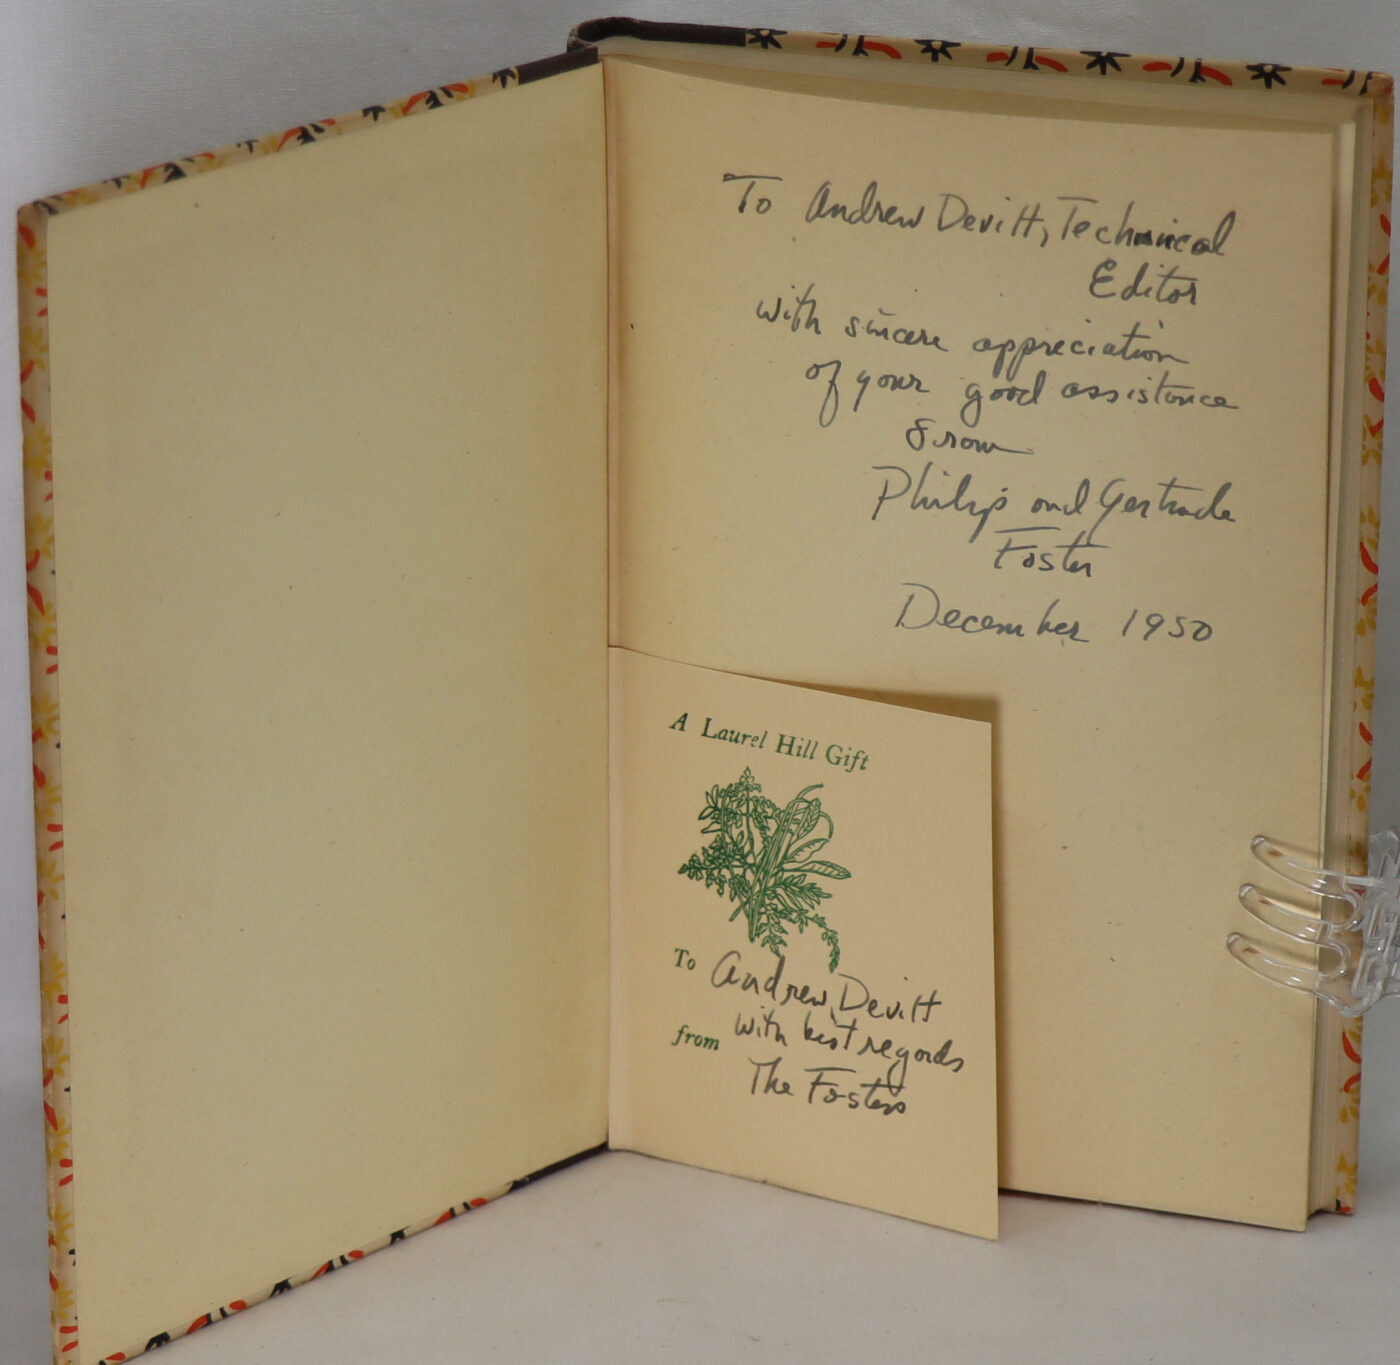 To Andrew Devitt, Technical
Editor
with sincere appreciation
of your good assistance
from
Philip and Gertrude
Foster
December 1950
A Laurel Hill Gift
To Andrew Devitt
with best regards
from
The Fosters